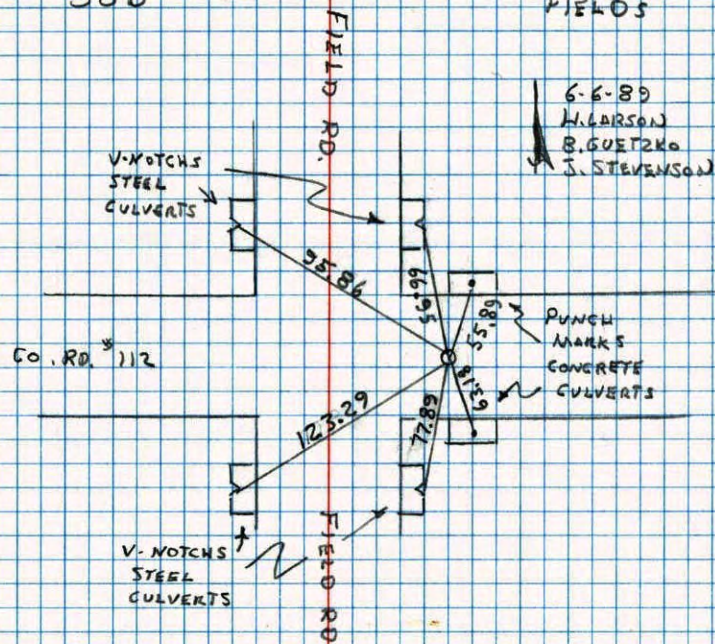 FIELDS
FIELD RD.
6-6-89
W. LARSON
B. GUETZKO
J. STEVENSON
V-NOTCHS
STEEL
CULVERTS
95.86
55.89
PUNCH
MARKS
CONCRETE
CULVERTS
CO. RD. #112
63.18
123.29
77.89
V-NOTCHS
STEEL
CULVERTS
FIELD RD